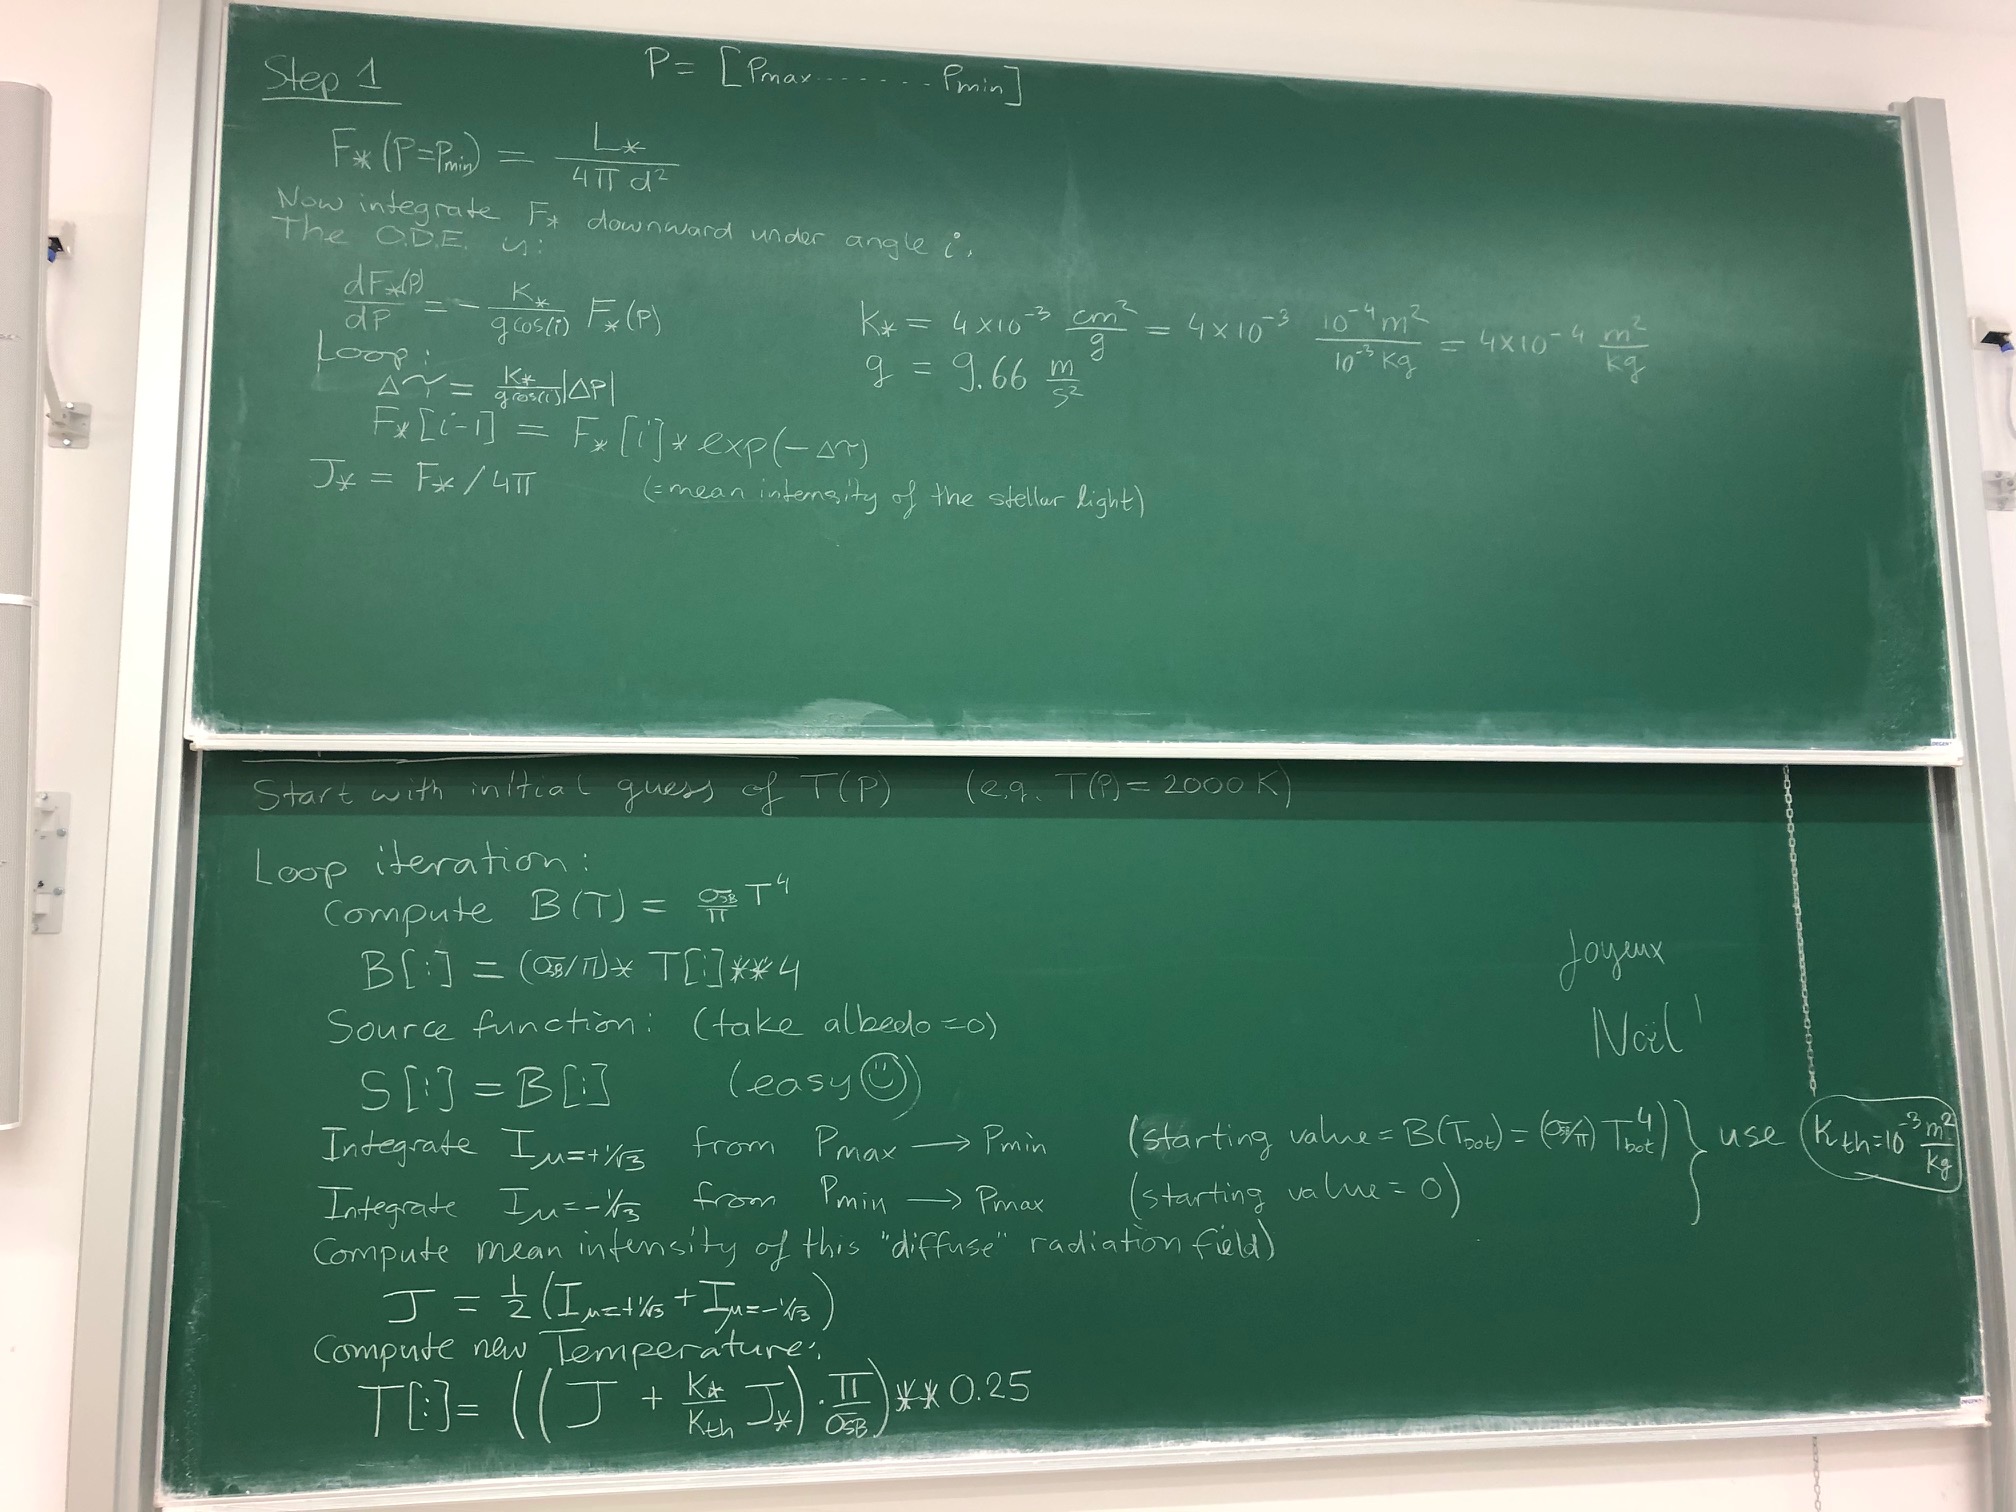 Step 1
P = [Pmax........Pmin]
F* (P=Pmin) = L* / 4π d²
Now integrate F* downward under angle i.
The O.D.E. is:
dF*(P)/dP = - K*/(g cos(i)) F*(P)
K* = 4×10⁻³ cm²/g = 4×10⁻³ 10⁻⁴m²/10⁻³kg = 4×10⁻⁴ m²/kg
Loop:
g = 9.66 m/s²
Δτ = K*/(g cos(i)) |ΔP|
F*[i-1] = F*[i] * exp(-Δτ)
J* = F* / 4π (=mean intensity of the stellar light)
Start with initial guess of T(P) (e.g. T(P) = 2000 K)
Loop iteration:
Compute B(T) = σSB/π T⁴
B[:] = (σSB/π)* T[:]**4
Joyeux
Source function: (take albedo=0)
Noël
S[:] = B[:] (easy☺)
Integrate Iμ=+1/√3 from Pmax → Pmin (starting value = B(Tbot) = (σSB/π) Tbot⁴) } use Kth=10⁻³ m²/kg
Integrate Iμ=-1/√3 from Pmin → Pmax (starting value = 0)
Compute mean intensity of this "diffuse" radiation field)
J = 1/2 (Iμ=+1/√3 + Iμ=-1/√3)
Compute new Temperature:
T[:]= ((J + K*/Kth J*)·π/σSB)**0.25